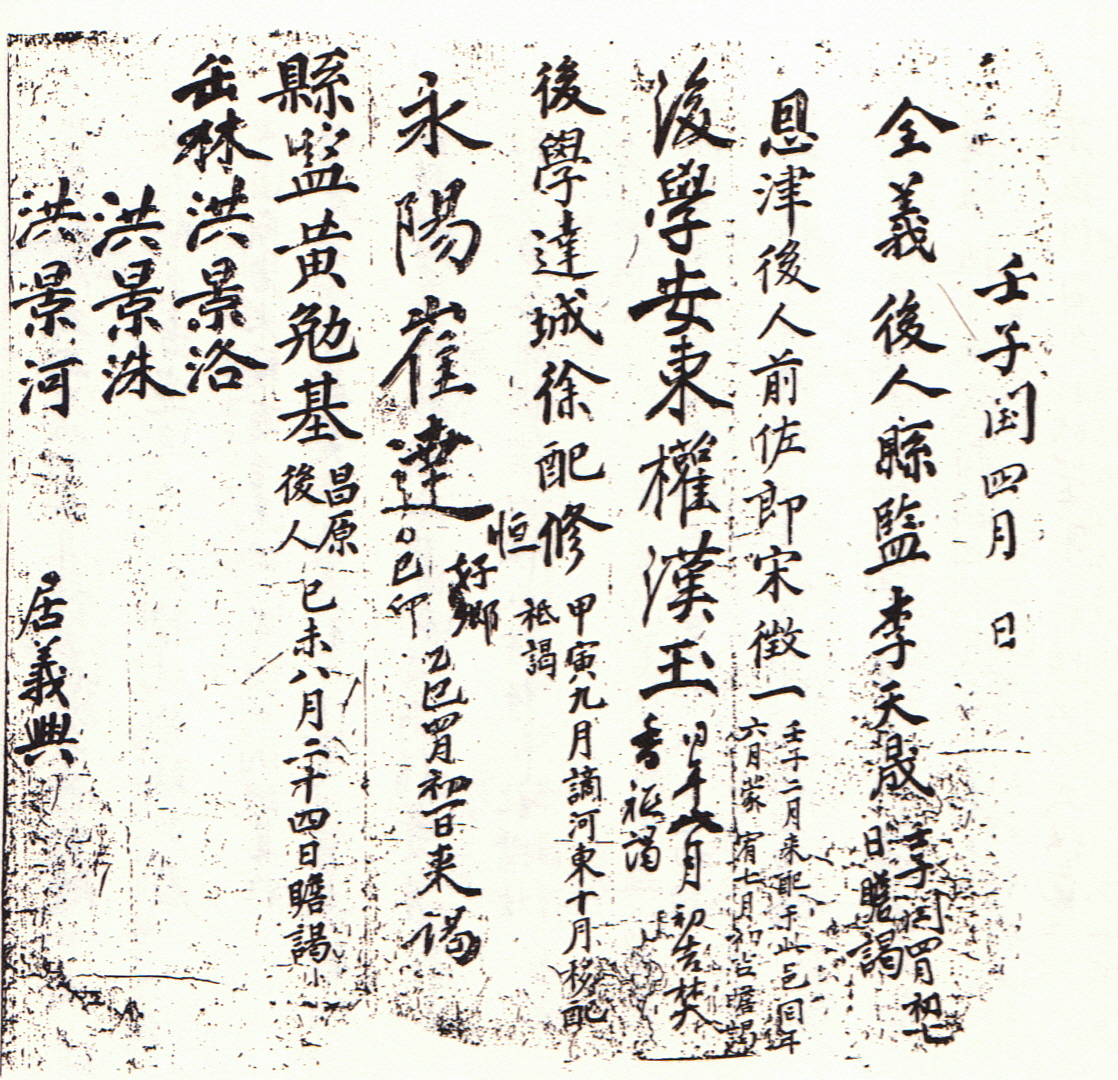 壬子閏四月 日
全義後人縣監李天晟 壬子閏四月初七
日瞻謁
恩津後人前佐郎宋徵一 壬子二月来配于此邑同年
六月蒙宥七月初吉瞻謁
後學安東權漢玉 同年七月初吉焚
香祗謁
後學達城徐配修 甲寅九月謫河東十月移配
祗謁
永陽崔達 恒 好鄉 乙巳四月初一日来謁
己卯
縣監黃勉基 昌原
後人 己未八月二十四日瞻謁
缶林洪景洛
洪景洙
洪景河 居義興